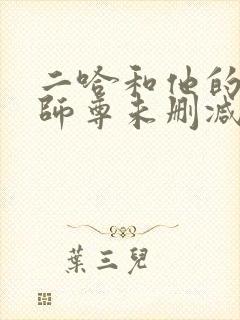 二哈和他的
師尊未删减
葉三兒